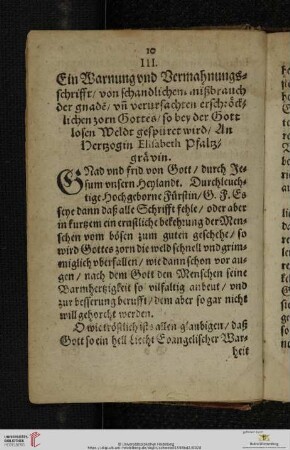 10
III.
Ein Warnung vnd Vermahnungs-
schrifft/ von schandlichem mißbrauch
der gnadē, vn̄ verursachten erschröck-
lichen zorn Gottes/ so bey der Gott
losen Weldt gespüret wird/ An
Hertzogin Elisabeth Pfaltz-
grävin.
GNad vnd frid von Gott/ durch Je-
sum vnsern Heylandt. Durchleuch-
tige Hochgeborne Fürstin/ G. F. Es
seye dann daß alle Schrifft fehle/ oder aber
in kurtzem ein ernstliche bekehrung der Men-
schen vom bösen zum guten geschehe/ so
wird Gottes zorn die weld schnell vnd grim-
miglich vberfallen/ wie dann schon vor au-
gen/ nach dem Gott den Menschen seine
Barmhertzigkeit so vilfaltig anbeut/ vnd
zur besserung berufft/ dem aber so gar nicht
will gehorcht werden.
O wie tröstlich ists allen glaubigen/ daß
Gott so ein hell Liecht Evangelischer War-
heit
© Universitätsbibliothek Heidelberg